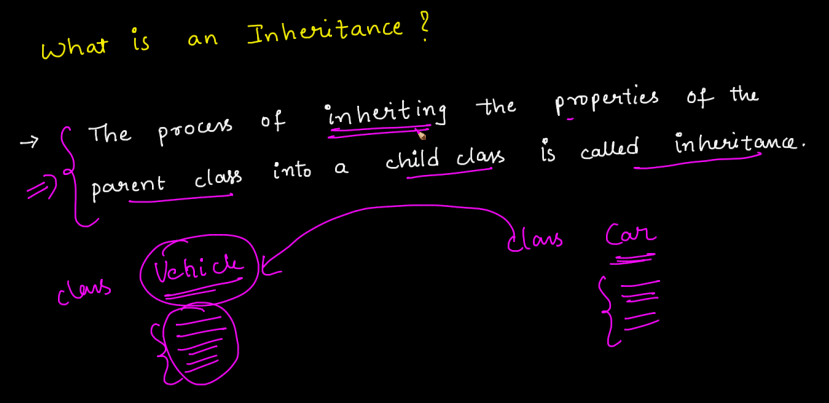 What is an Inheritance?
→ The process of inheriting the properties of the
⇒ parent class into a child class is called inheritance.
class Vehicle
class Car